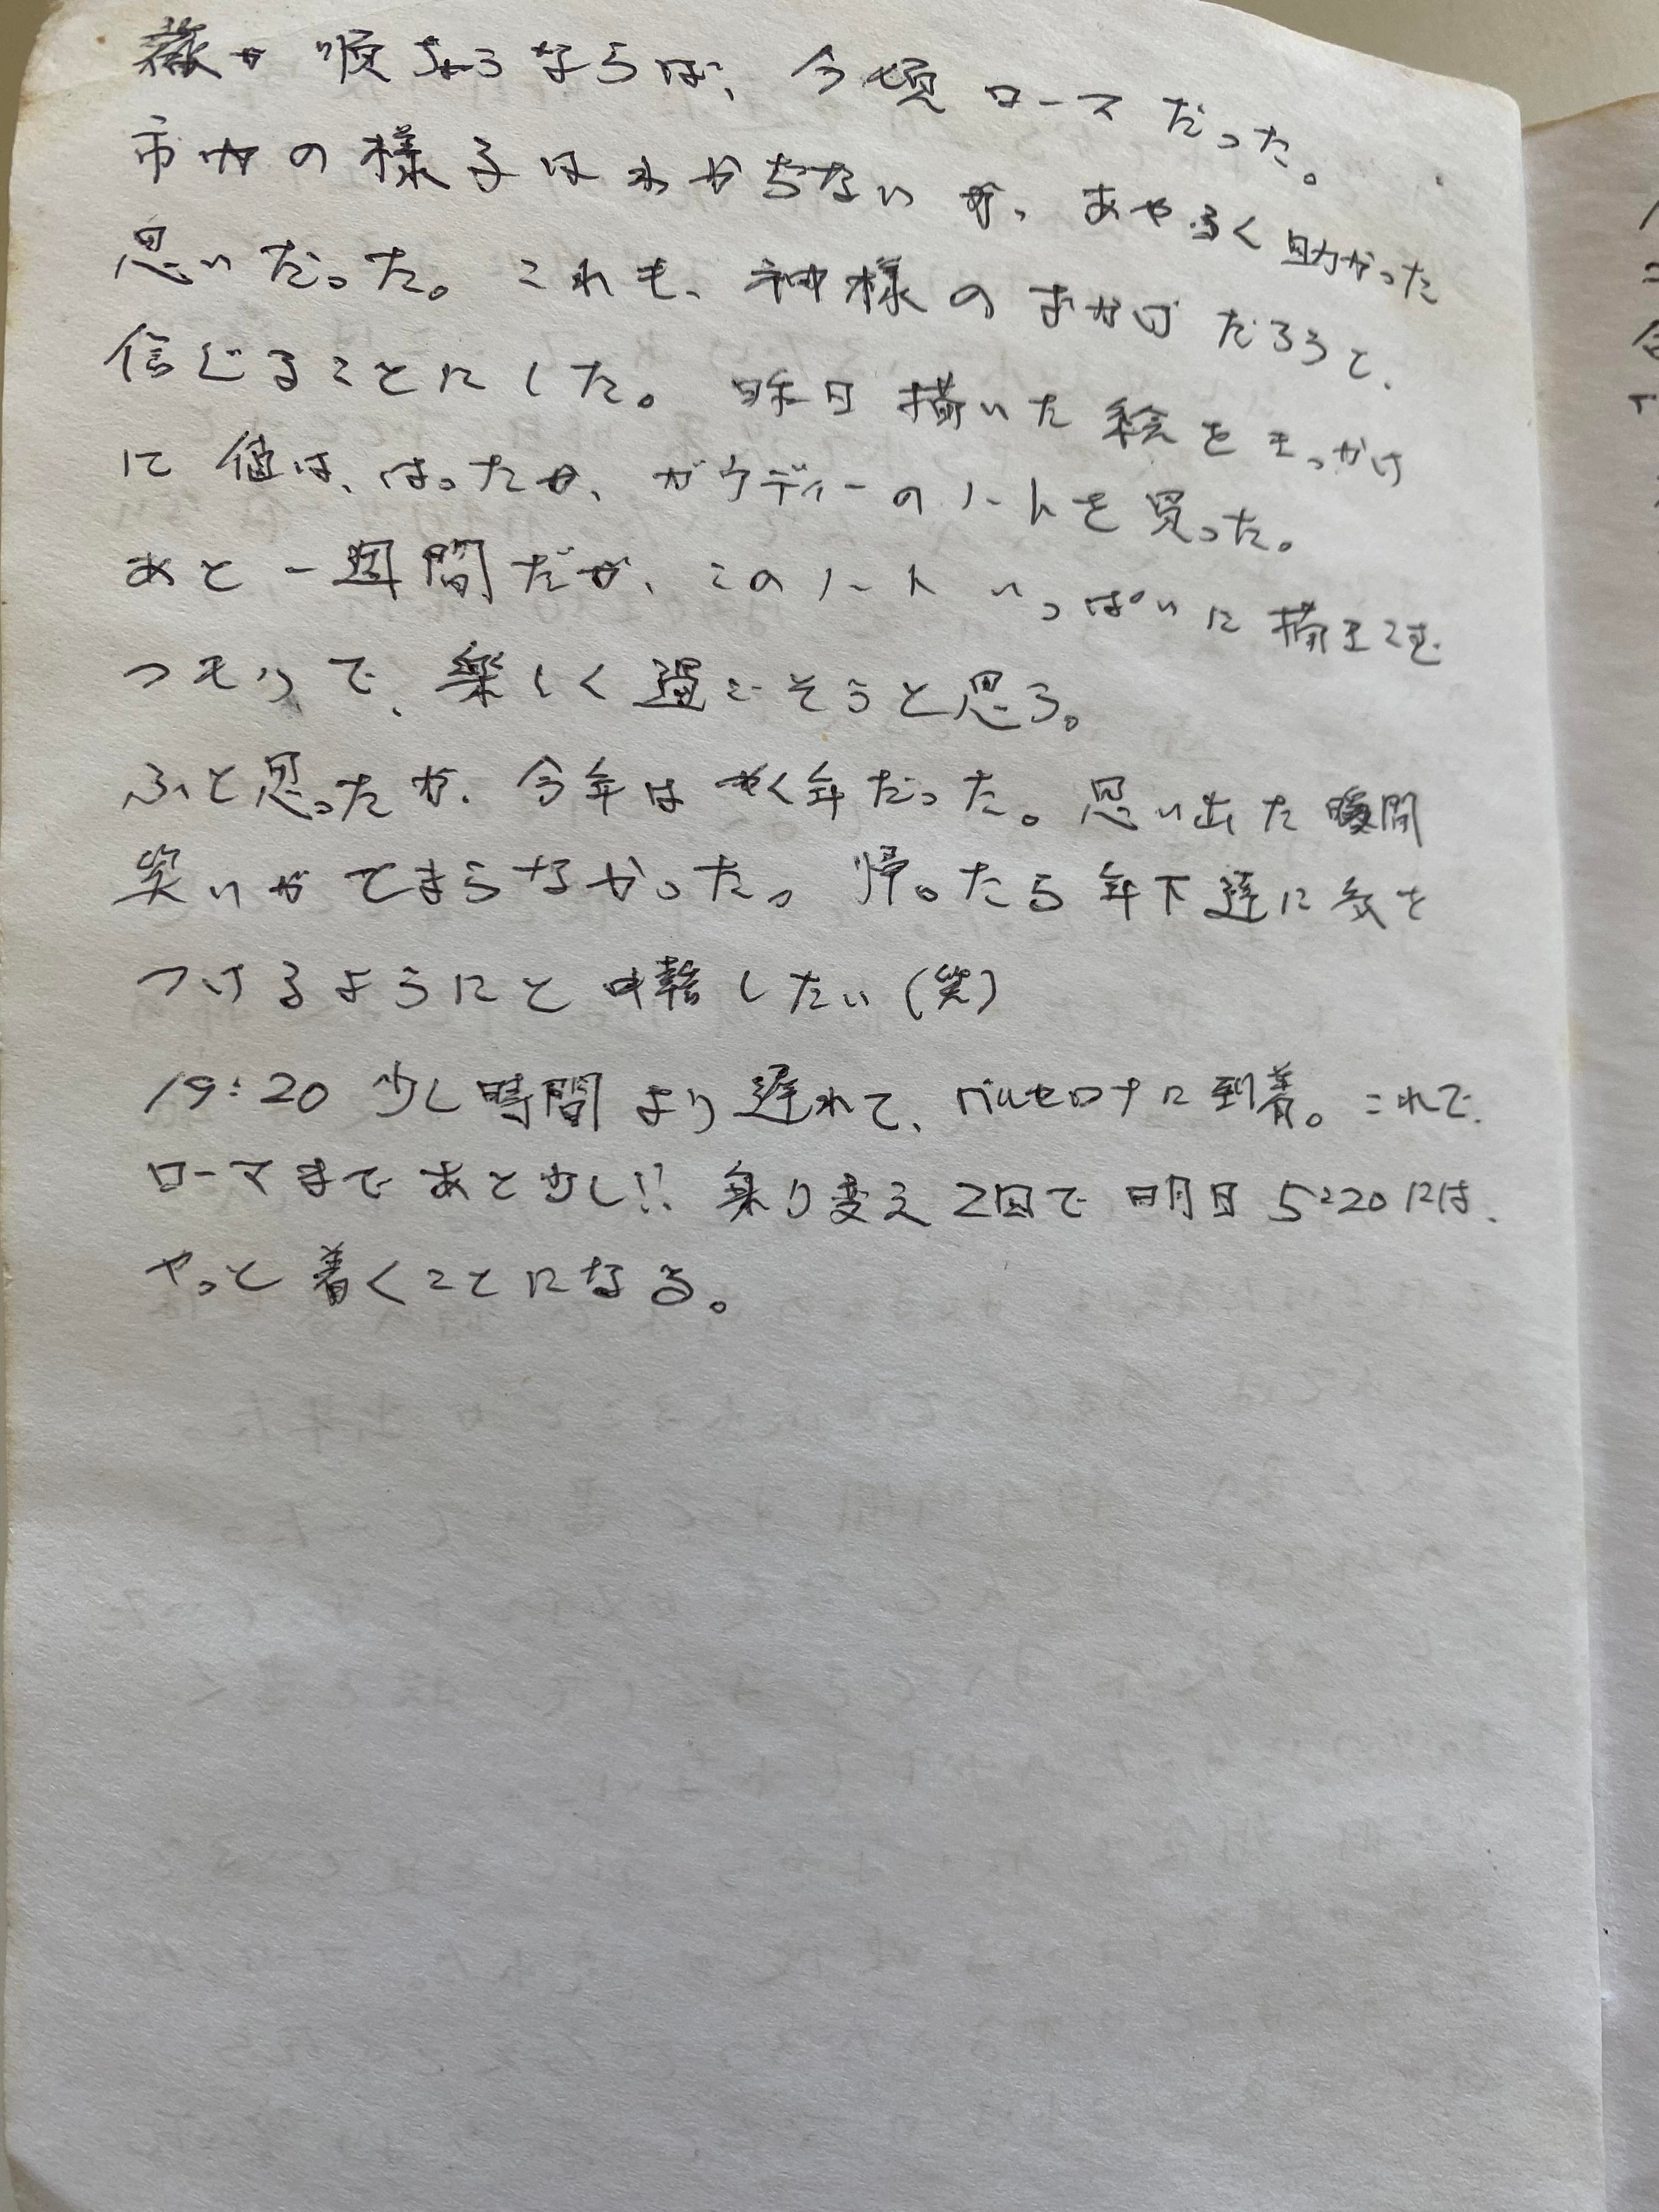 が順ちょうならば、今頃ローマだった。
市内の様子はわからないが、あやふく助かった
思いだった。これも、神様のおかげだろうと、
信じることにした。昨日描いた絵をきっかけ
に値は、はったが、ガウディーのノートを買った。
あと一週間だが、このノートいっぱいに描きこむ
つもりで、楽しく過ごそうと思う。
ふと思ったが、今年はやく年だった。思い出た瞬間
笑いがとまらなかった。帰ったら年下達に気を
つけるようにと したい(笑)
19:20 少し時間より遅れて、バルセロナに到着。これで、
ローマまであと少し!! 乗り変え2回で明日5:20には、
やっと着くことになる。